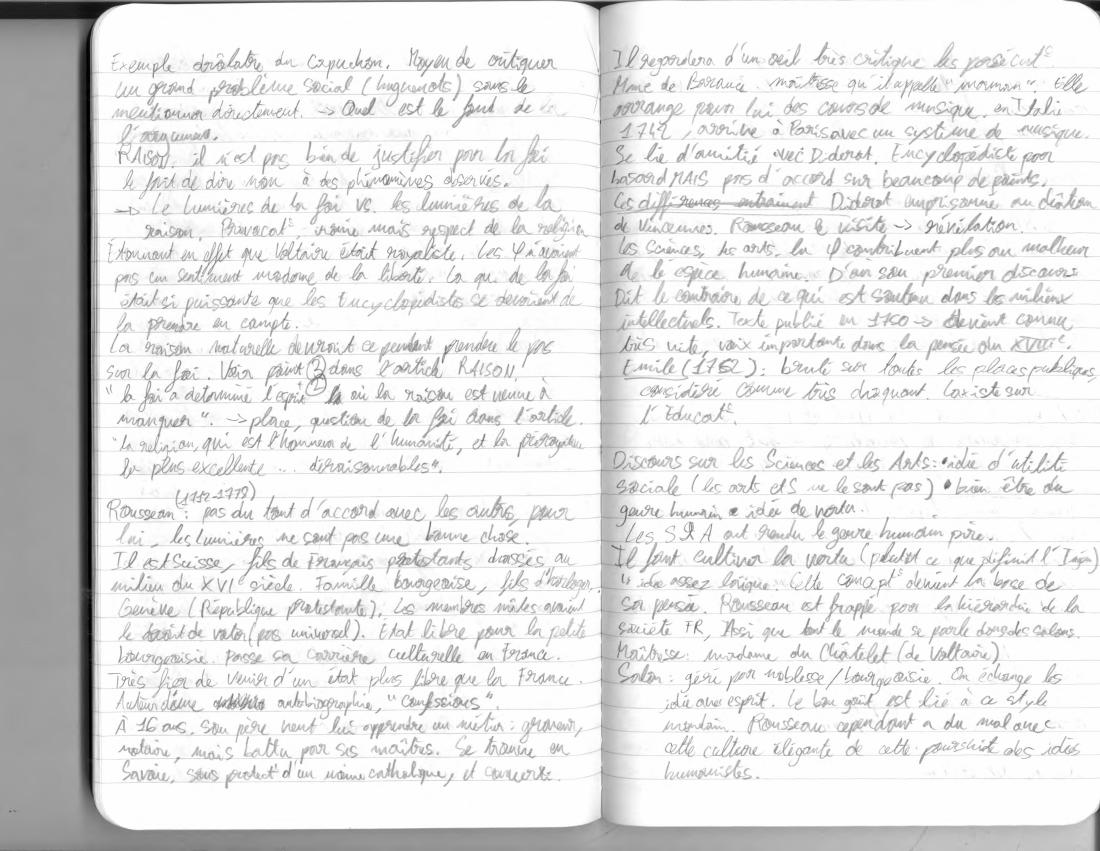 Exemple drôlatre du Capuchon. Moyen de critiquer
un grand problème social (huguenots) sans le
mentionner directement. → Quel est le fond de
l'argument.
RAISON, il n'est pas bien de justifier par la foi
le fait de dire non à des phénomènes observés.
→ Le lumières de la foi vs. les lumières de la
raison. Provocat° ironie mais respect de la religion
Étonnant en effet que Voltaire était royaliste. Les φ n'avaient
pas un sentiment moderne de la liberté. La qu. de la foi
était si puissante que les Encyclopédistes se devaient de
la prendre en compte.
La raison naturelle devrait cependant prendre le pas
sur la foi. Voir point 3 dans l'article RAISON.
2
"la foi a déterminé l'esprit là où la raison est venue à
manquer". → place, question de la foi dans l'article.
"la religion, qui est l'honneur de l'humanité, et la prérogative
la plus excellente ... déraisonnables".
(1712-1778)
Rousseau : pas du tout d'accord avec les autres, pour
lui, les lumières ne sont pas une bonne chose.
Il est Suisse, fils de Français protestants chassés au
milieu du XVI siècle. Famille bourgeoise, fils d'horloger,
Genève (République protestante), Les membres mâles avaient
le droit de voter (pas universel). Etat libre pour la petite
bourgeoisie. Passe sa carrière culturelle en France.
Très fier de venir d'un état plus libre que la France.
Auteur d'une autobiographie, "Confessions".
À 16 ans, son père veut lui apprendre un métier : graveur,
notaire, mais battu par ses maîtres. Se trouve en
Savoie, sous protect° d'un moine catholique, et converti.
Il regardera d'un oeil très critique les persécut°
Mme de maîtresse qu'il appelle "maman". Elle
arrange pour lui des cours de musique. en Italie
1742, arrive à Paris avec un système de musique.
Se lie d'amitié avec Diderot. Encyclopédiste par
hasard MAIS pas d'accord sur beaucoup de points.
Ces différences entrainent Diderot emprisonné au château
de Vincennes. Rousseau le visite → révélation.
Les Sciences, les arts, la φ contribuent plus au malheur
de l'espèce humaine. D'où son premier discours
Dit le contraire de ce qui est soutenu dans les milieux
intellectuels. Texte publié en 1750 → devient connu
très vite, voix importante dans la pensée du XVIII e.
Emile (1762) : brulé sur toutes les places publiques,
considéré comme très choquant. Laxiste sur
l'Educat°.
Discours sur les Sciences et les Arts : • idée d'utilité
sociale (les arts et S ne le sont pas) • bien être du
genre humain • idée de vertu.
Les S & A ont rendu le genre humain pire.
Il faut cultiver la vertu (plutôt ce que définit l'
" idée assez laïque. Cette concept° devient la base de
sa pensée. Rousseau est frappé par la hiérarchie de la
société FR, Assi que tout le monde se parle dans des salons.
Maîtresse : madame du Châtelet (de Voltaire)
Salon : géré par noblesse/bourgeoisie. On échange les
idée avec esprit. Le bon goût est lié à ce style
mondain. Rousseau cependant a du mal avec
cette culture élégante de cette poursuite des idées
humanistes.